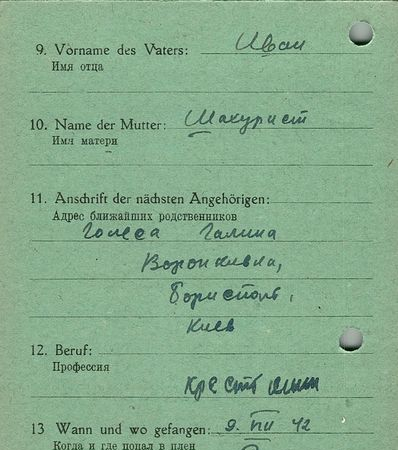 9. Vorname des Vaters: Иван
Имя отца
10. Name der Mutter: Шакурист
Имя матери
11. Anschrift der nächsten Angehörigen:
Адрес ближайших родственников
Галина
Воронкивка,
Бориспіль,
Киев
12. Beruf:
Профессия
Крестьянин
13 Wann und wo gefangen: 9. VII 42
Когда и где попал в плен